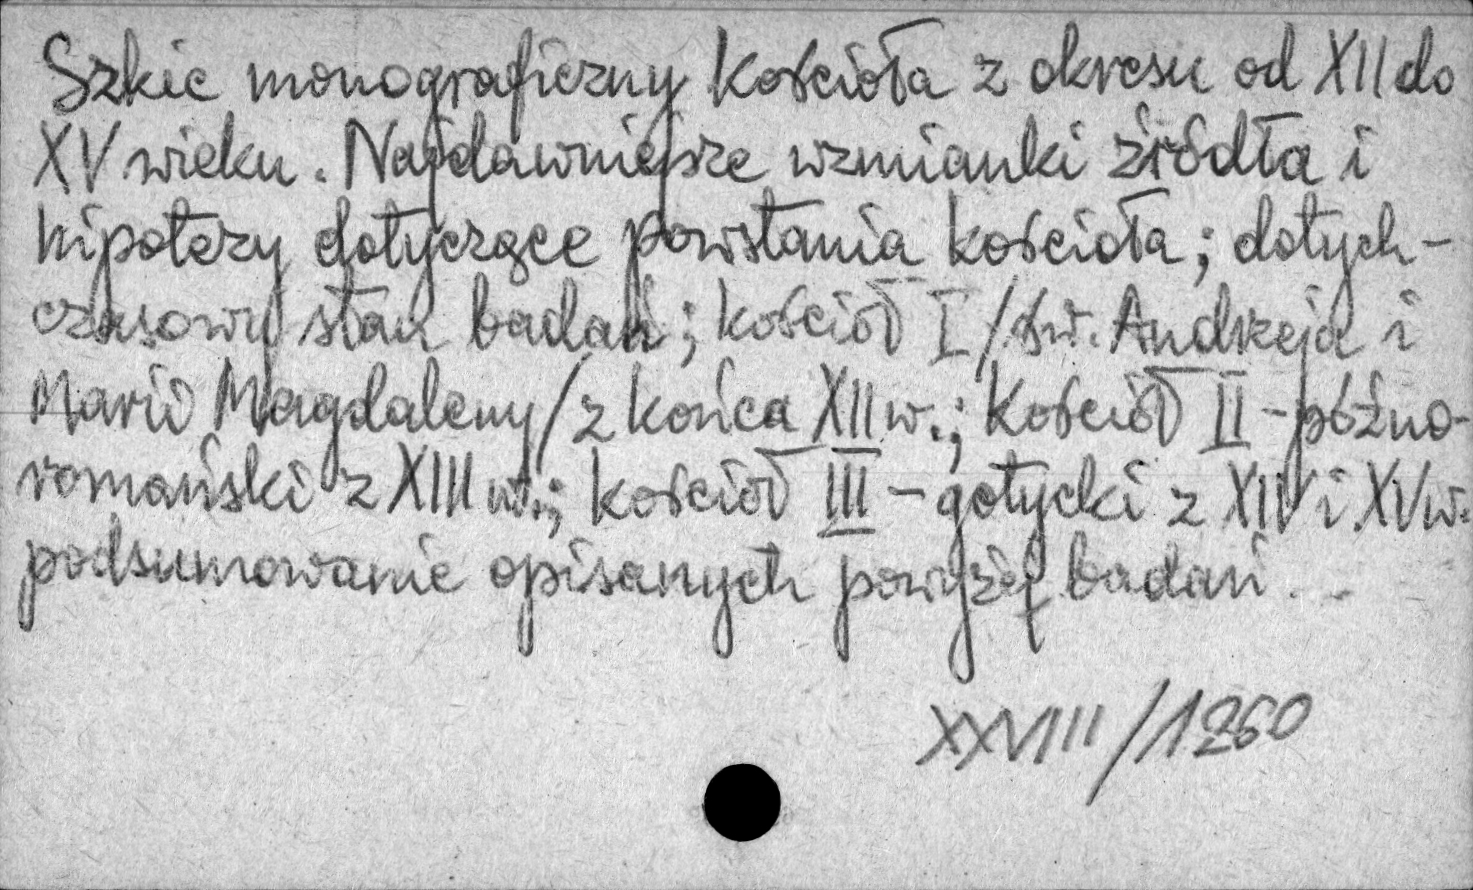 Szkic monograficzny kościoła z okresu od XII do
XV wieku. Najdawniejsze wzmianki źródła i
hipotezy dotyczące powstania kościoła; dotych-
czasowy stan badań; kościół I /św. Andrzeja i
Marii Magdaleny/ z końca XII w.; kościół II - późno-
romański z XIII w.; kościół III - gotycki z XIV i XV w.
podsumowanie opisanych powyżej badań...
XXVIII/1960